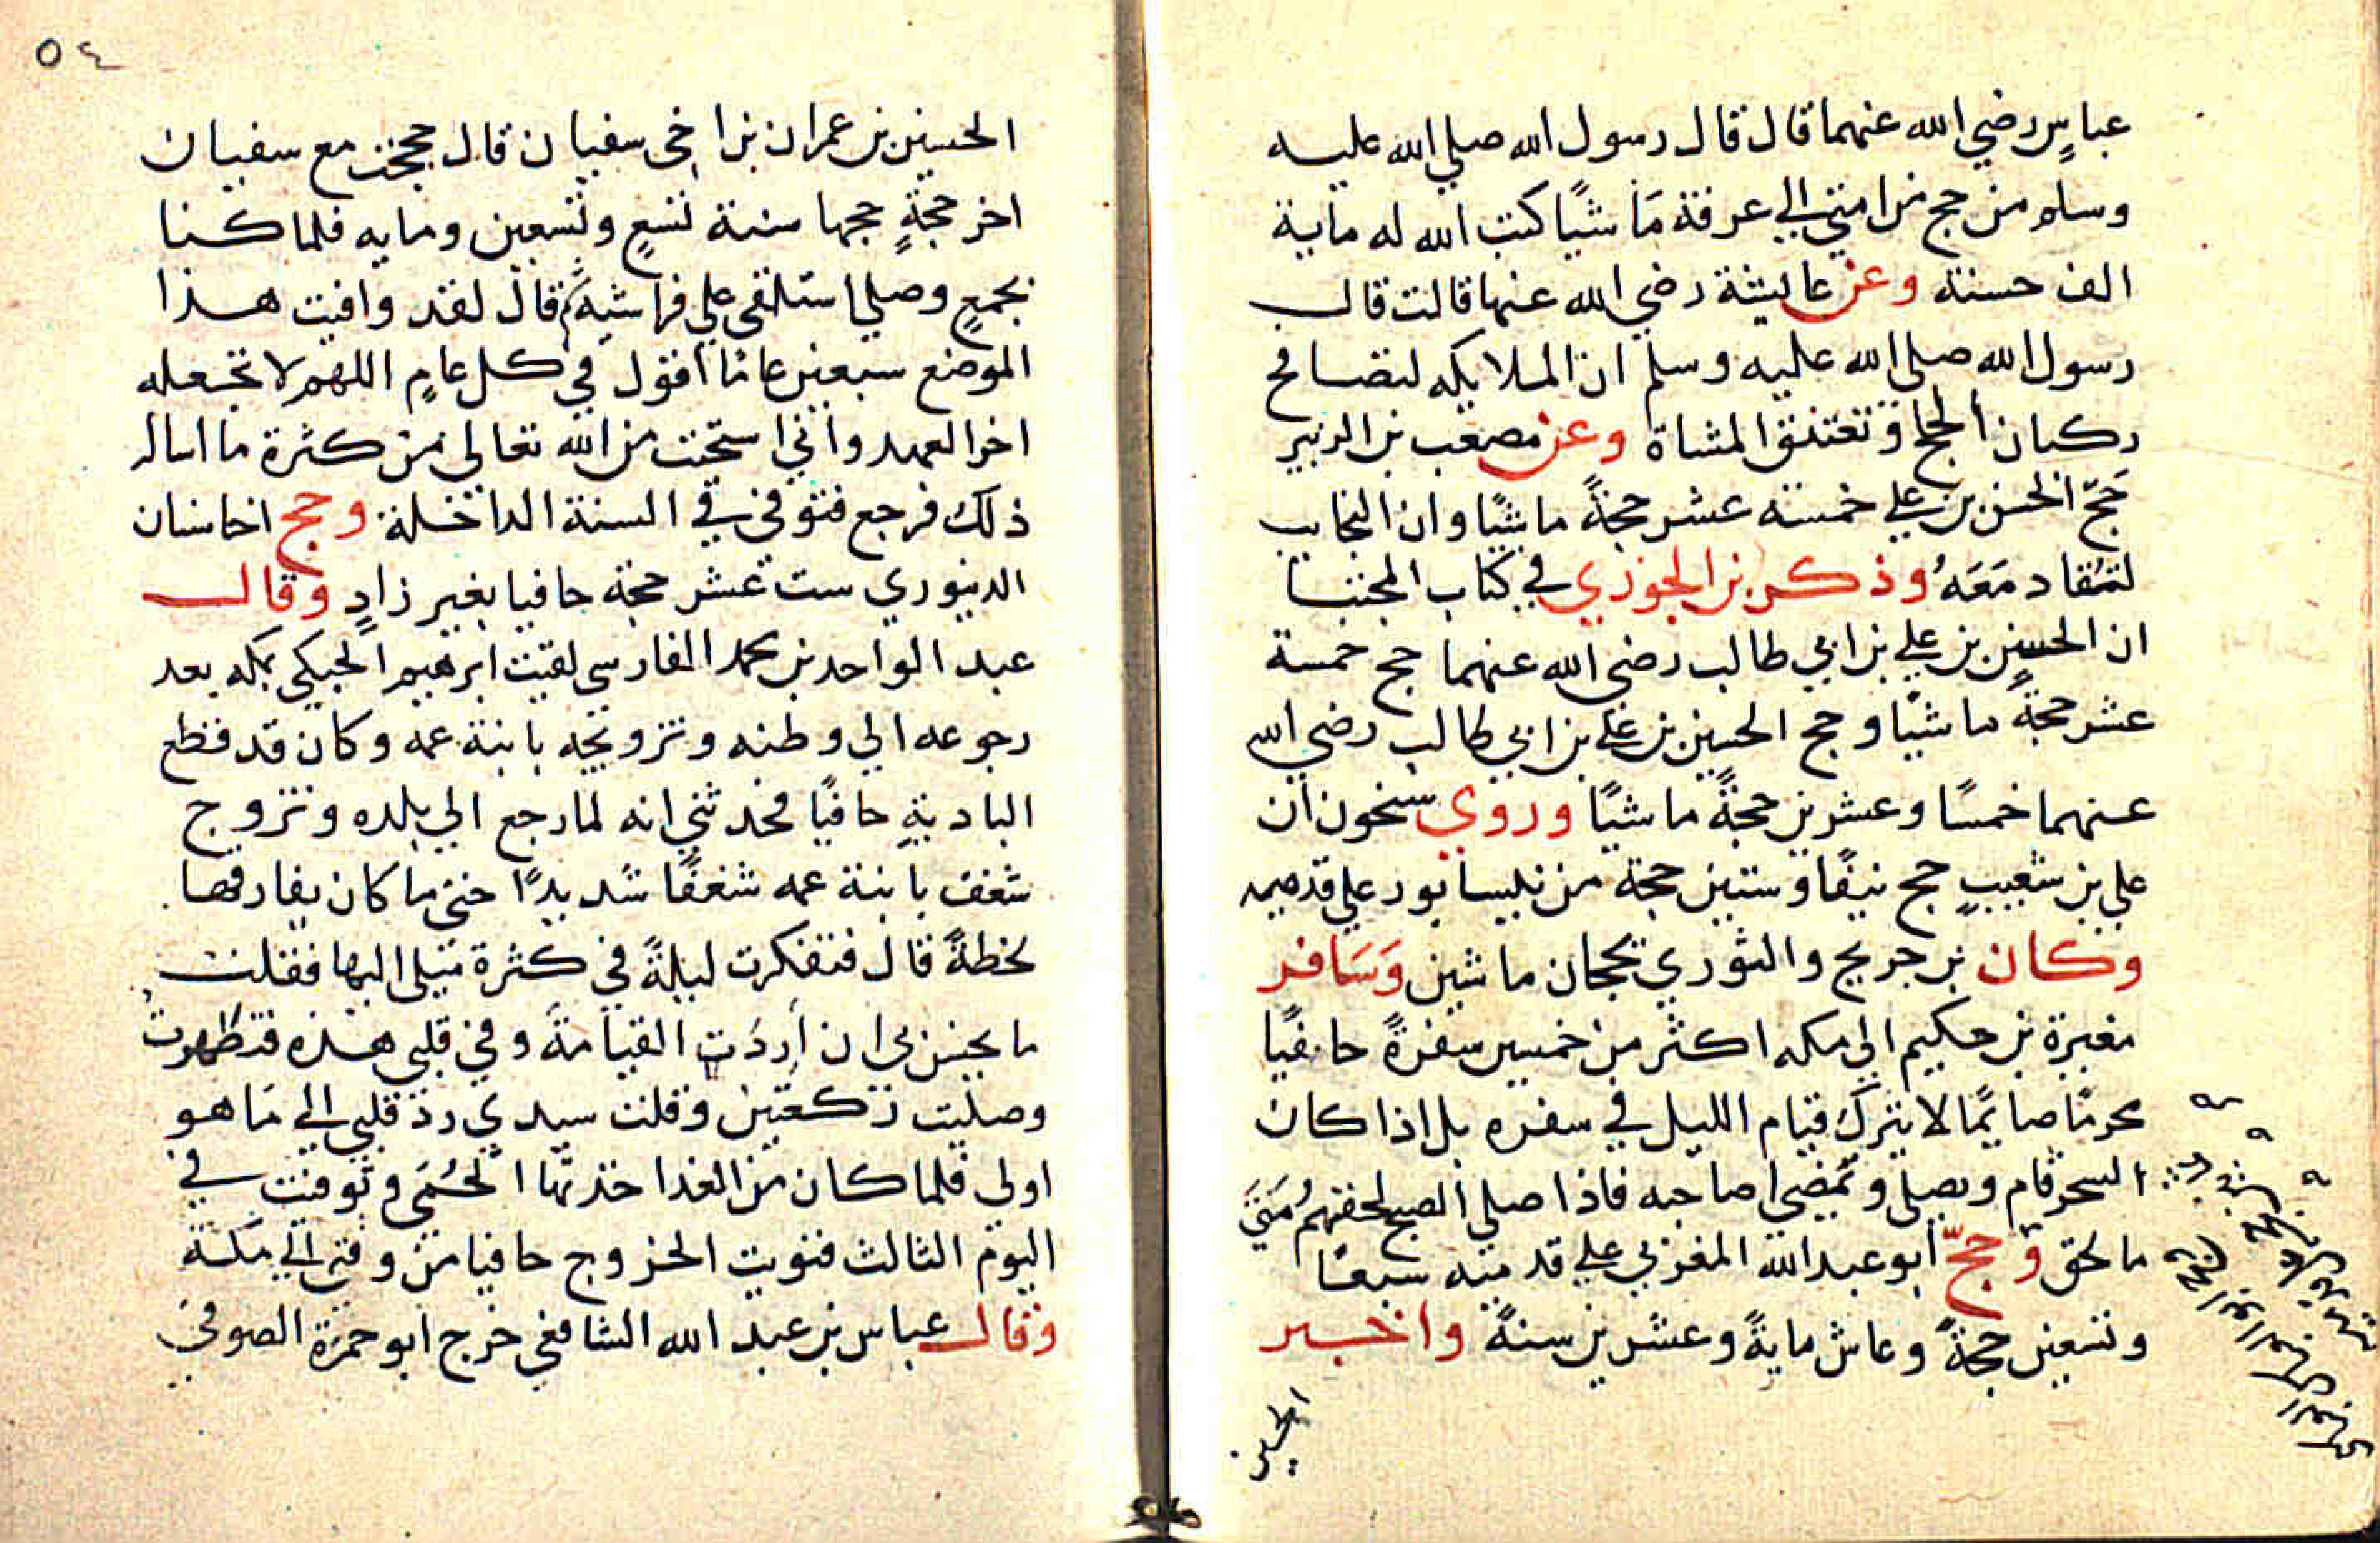 عباسٍ رضي الله عنهما قال قال رسول الله صلي الله عليه
وسلم من حج من امتي الي عرفة مَاشيًا كتب الله له ماية
الف حسنة وعن عايشة رضي الله عنها قالت قال
رسول الله صلي الله عليه وسلم ان الملايكه لتصافح
ركبان الحجاج وتعتنق المشاة وعن مصعب بن الزبير
حَجّ الحسن بن علي خمسة عشر حجةً ماشيًا وان النجايب
لتُقاد مَعَهُ وذكر بن الجوزي في كتاب المجتبا
ان الحسن بن علي بن ابي طالب رضي الله عنهما حج خمسة
عشر حجةً ماشيًا وحج الحسين بن علي بن ابي طالب رضي الله
عنهما خمسًا وعشرين حجةً ماشيًا وروي سحنون ان
علي بن شعيبٍ حج نيفًا وستين حجة من نيسابور علي قدميه
وكان بن جريج والثوري يحجان ماشين وَسَافر
مغيرة بن حكيم الي مكه اكثر من خمسين سفرةً حافيًا
محرمًا صايمًا لا يترك قيام الليل في سفره بل اذا كان
السحر قام ويصلي ويمضي اصاحبه فاذا صلي الصبح لحقهم مَتَي
ما لحق وَحجّ ابو عبد الله المغربي علي قدميه سبعًا
وتسعين حجةً وعاش مايةً وعشرين سنةً واخبر
الحسين
٥٤
الحسين بن عمران بن اخي سفيان قال حججت مع سفيان
اخر حجةٍ حجها سنة تسعٍ وتسعين ومايه فلما كنا
بجمعٍ وصلي استلقي علي فراشه ثم قال لقد وافيت هذا
الموضع سبعين عامًا اقول في كل عامٍ اللهم لا تجعله
اخر العهد واني استحيت من الله تعالي من كثرة ما اساله
ذلك فرجع فتوفي في السنة الداخلة وحج اخا سنان
الدينوري ست عشر حجة حافيا بغير زادٍ وقال
عبد الواحد بن محمد الفارسي لقيت ابرهيم الجبكي بمكه بعد
رجوعه الي وطنه وتزويجه بابنة عمه وكان قد قطع
البادية حافيًا فحدثني انه لما رجع الي بلده وتزوج
شغف بابنة عمه شغفًا شديدًا حتي ما كان يفارقها
لحظةً قال فتفكرت ليلةً في كثرة ميلي اليها فقلت
ما يحسن بي ان أردَت القيامة وفي قلبي هذه فتطهرت
وصليت ركعتين وقلت سيدي رد قلبي الي مَا هو
اولي فلما كان من الغد اخذتها الحُمَي وتوفيت في
اليوم الثالث فنويت الخروج حافيا من وقتي الي مكة
وقال عباس بن عبد الله الشافعي خرج ابو حمزة الصوفي